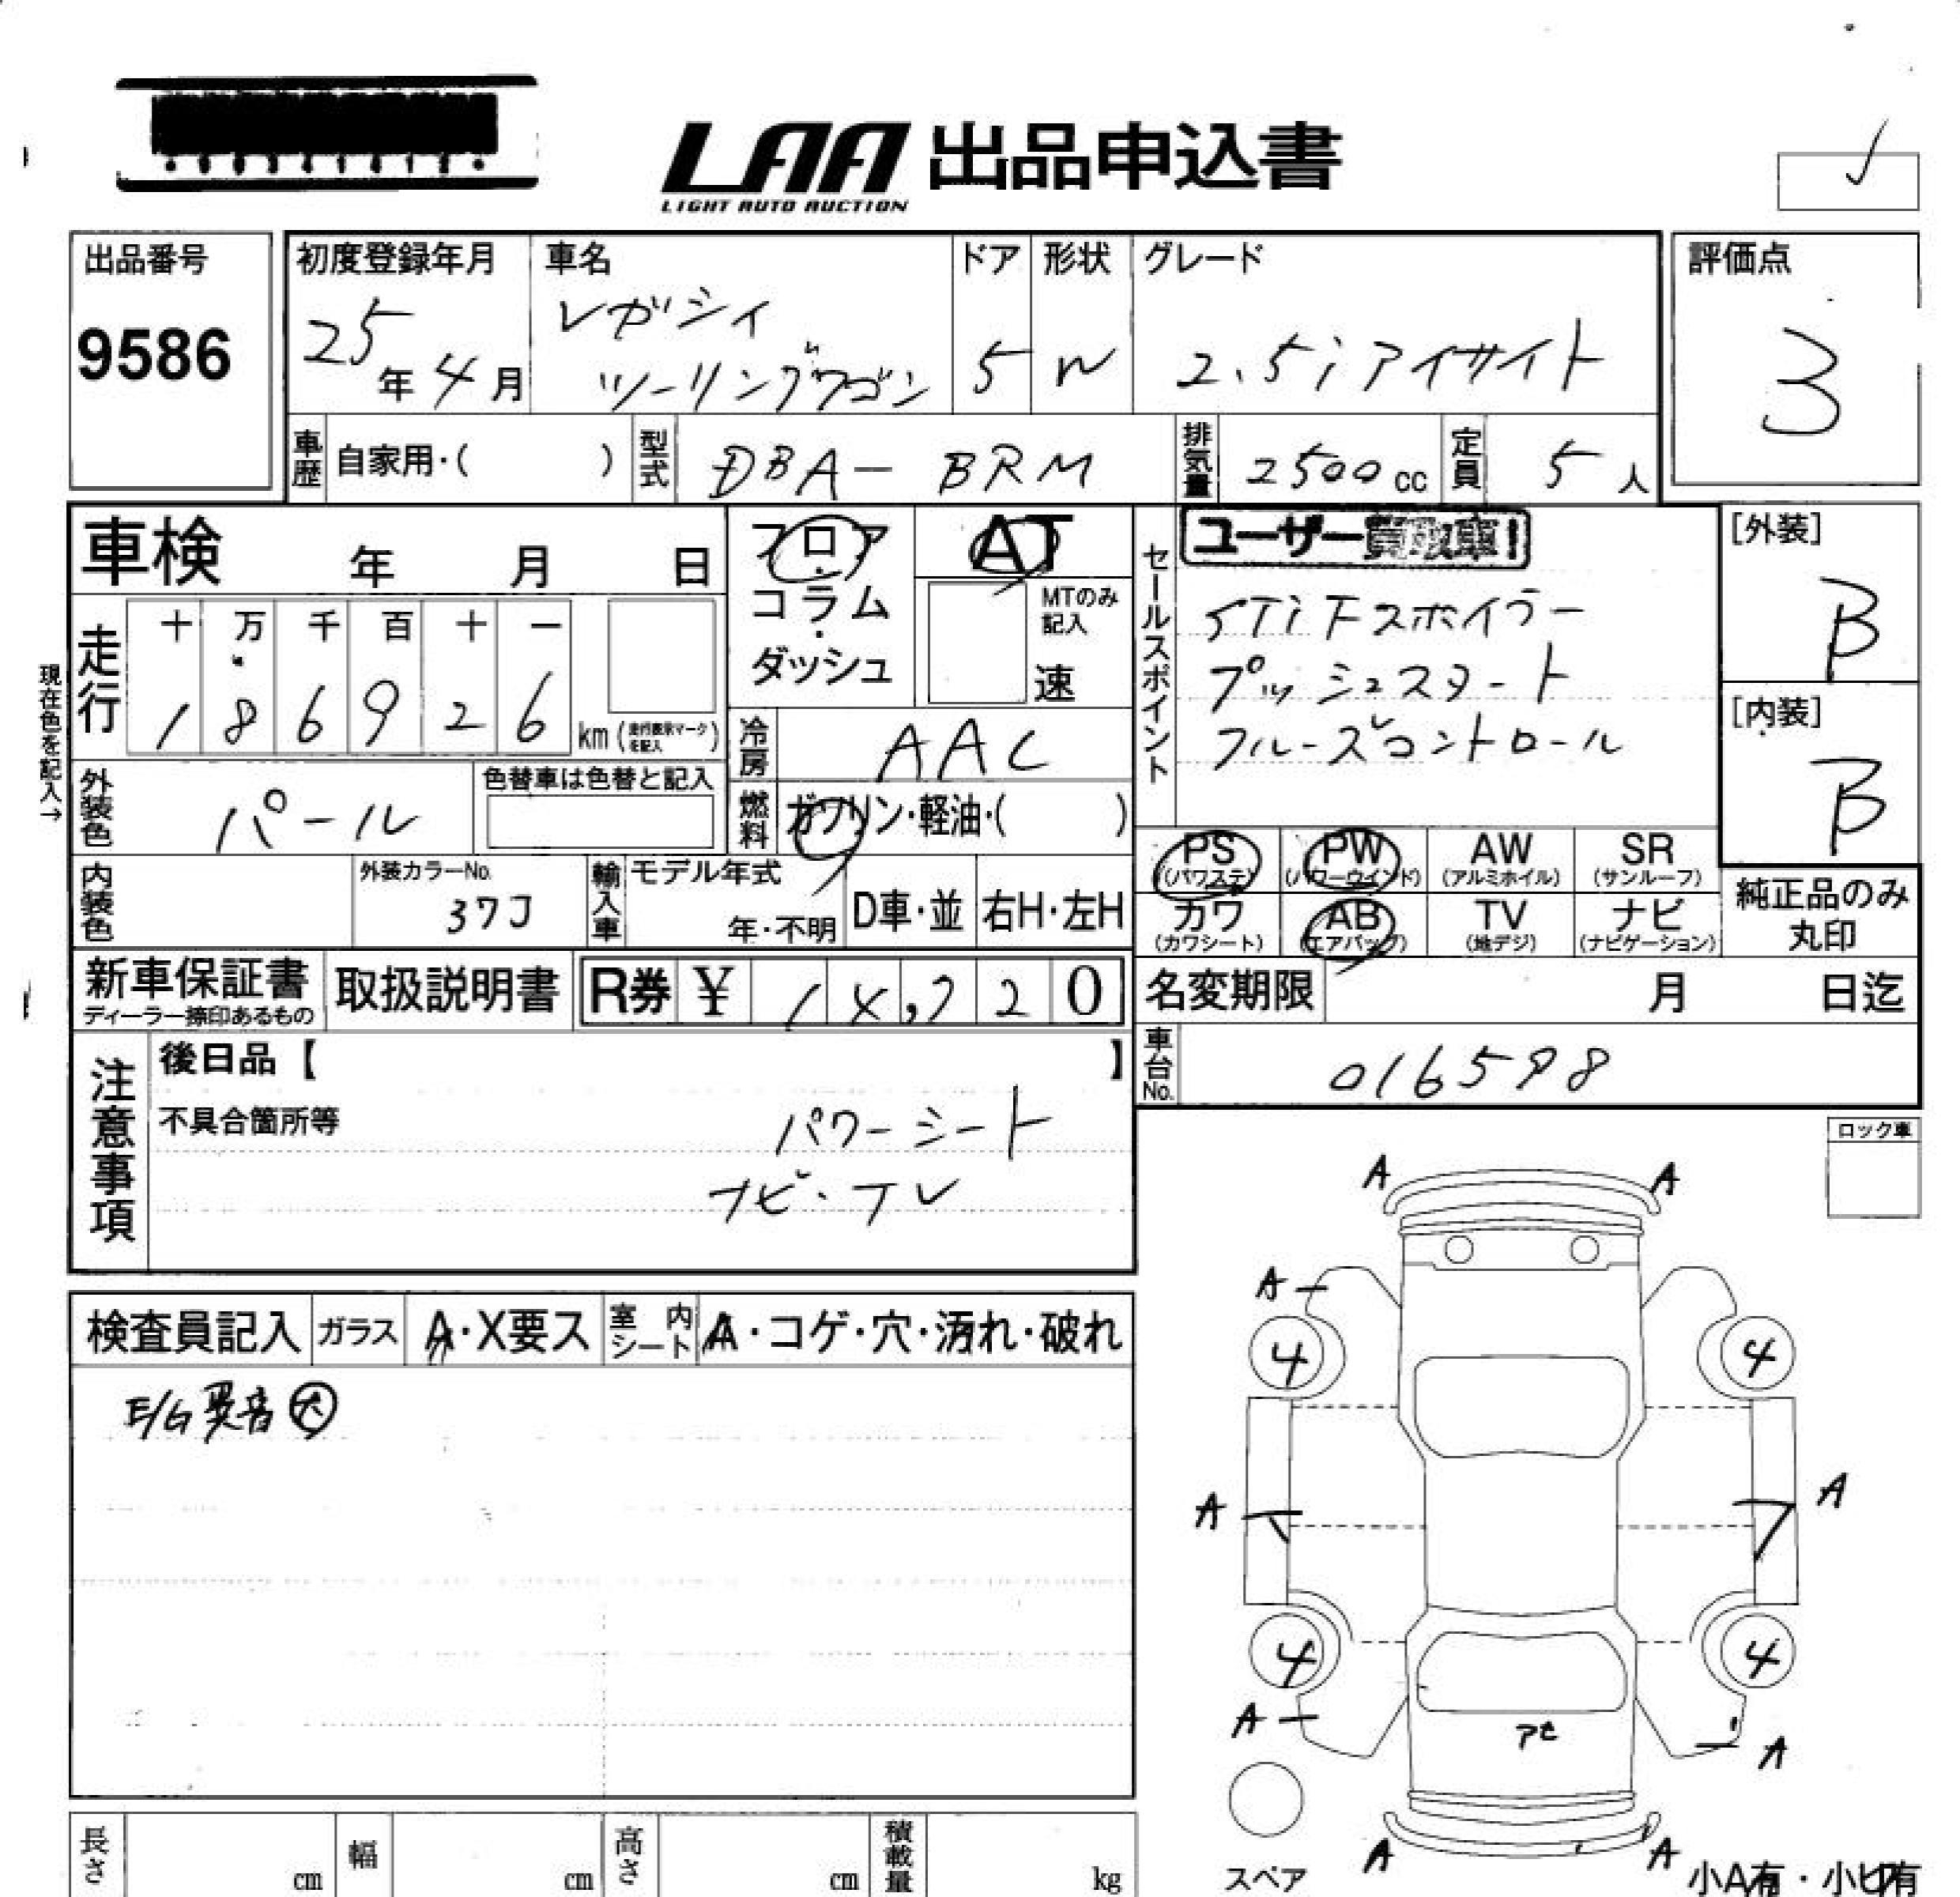 LAA 出品申込書
LIGHT AUTO AUCTION
出品番号
9586
初度登録年月
25年4月
車名
レガシィ
ツーリングワゴン
ドア
5
形状
W
グレード
2.5i アイサイト
評価点
3
車歴 自家用・( )
型式 DBA-BRM
排気量 2500cc
定員 5人
車検 年 月 日
フロア・コラム・ダッシュ
AT
MTのみ記入
速
セールスポイント
ユーザー買取車!
STi Fスポイラー
プッシュスタート
クルーズコントロール
[外装]
B
[内装]
B
現在色を記入→
走行
十 万 千 百 十 一
1 8 6 9 2 6 km (走行表示マークを記入)
冷房 AAC
外装色 パール
色替車は色替と記入
燃料 ガソリン・軽油・( )
内装色
外装カラーNo.
37J
輸入車
モデル年式
年・不明
D車・並
右H・左H
PS (パワステ)
PW (パワーウインド)
AW (アルミホイル)
SR (サンルーフ)
カワ (カワシート)
AB (エアバック)
TV (地デジ)
ナビ (ナビゲーション)
純正品のみ
丸印
新車保証書
ディーラー捺印あるもの
取扱説明書
R券 ¥ 14,720
名変期限 月 日迄
車台No. 016598
注意事項
後日品【 】
不具合箇所等
パワーシート
ナビ・TV
ロック車
検査員記入
ガラス A・X要ス
室内シート A・コゲ・穴・汚れ・破れ
E/G異音大
A A
A
4 4
A A
4 4
A A
アセ
A A
スペア
小A有・小凹有
長さ cm
幅 cm
高さ cm
積載量 kg